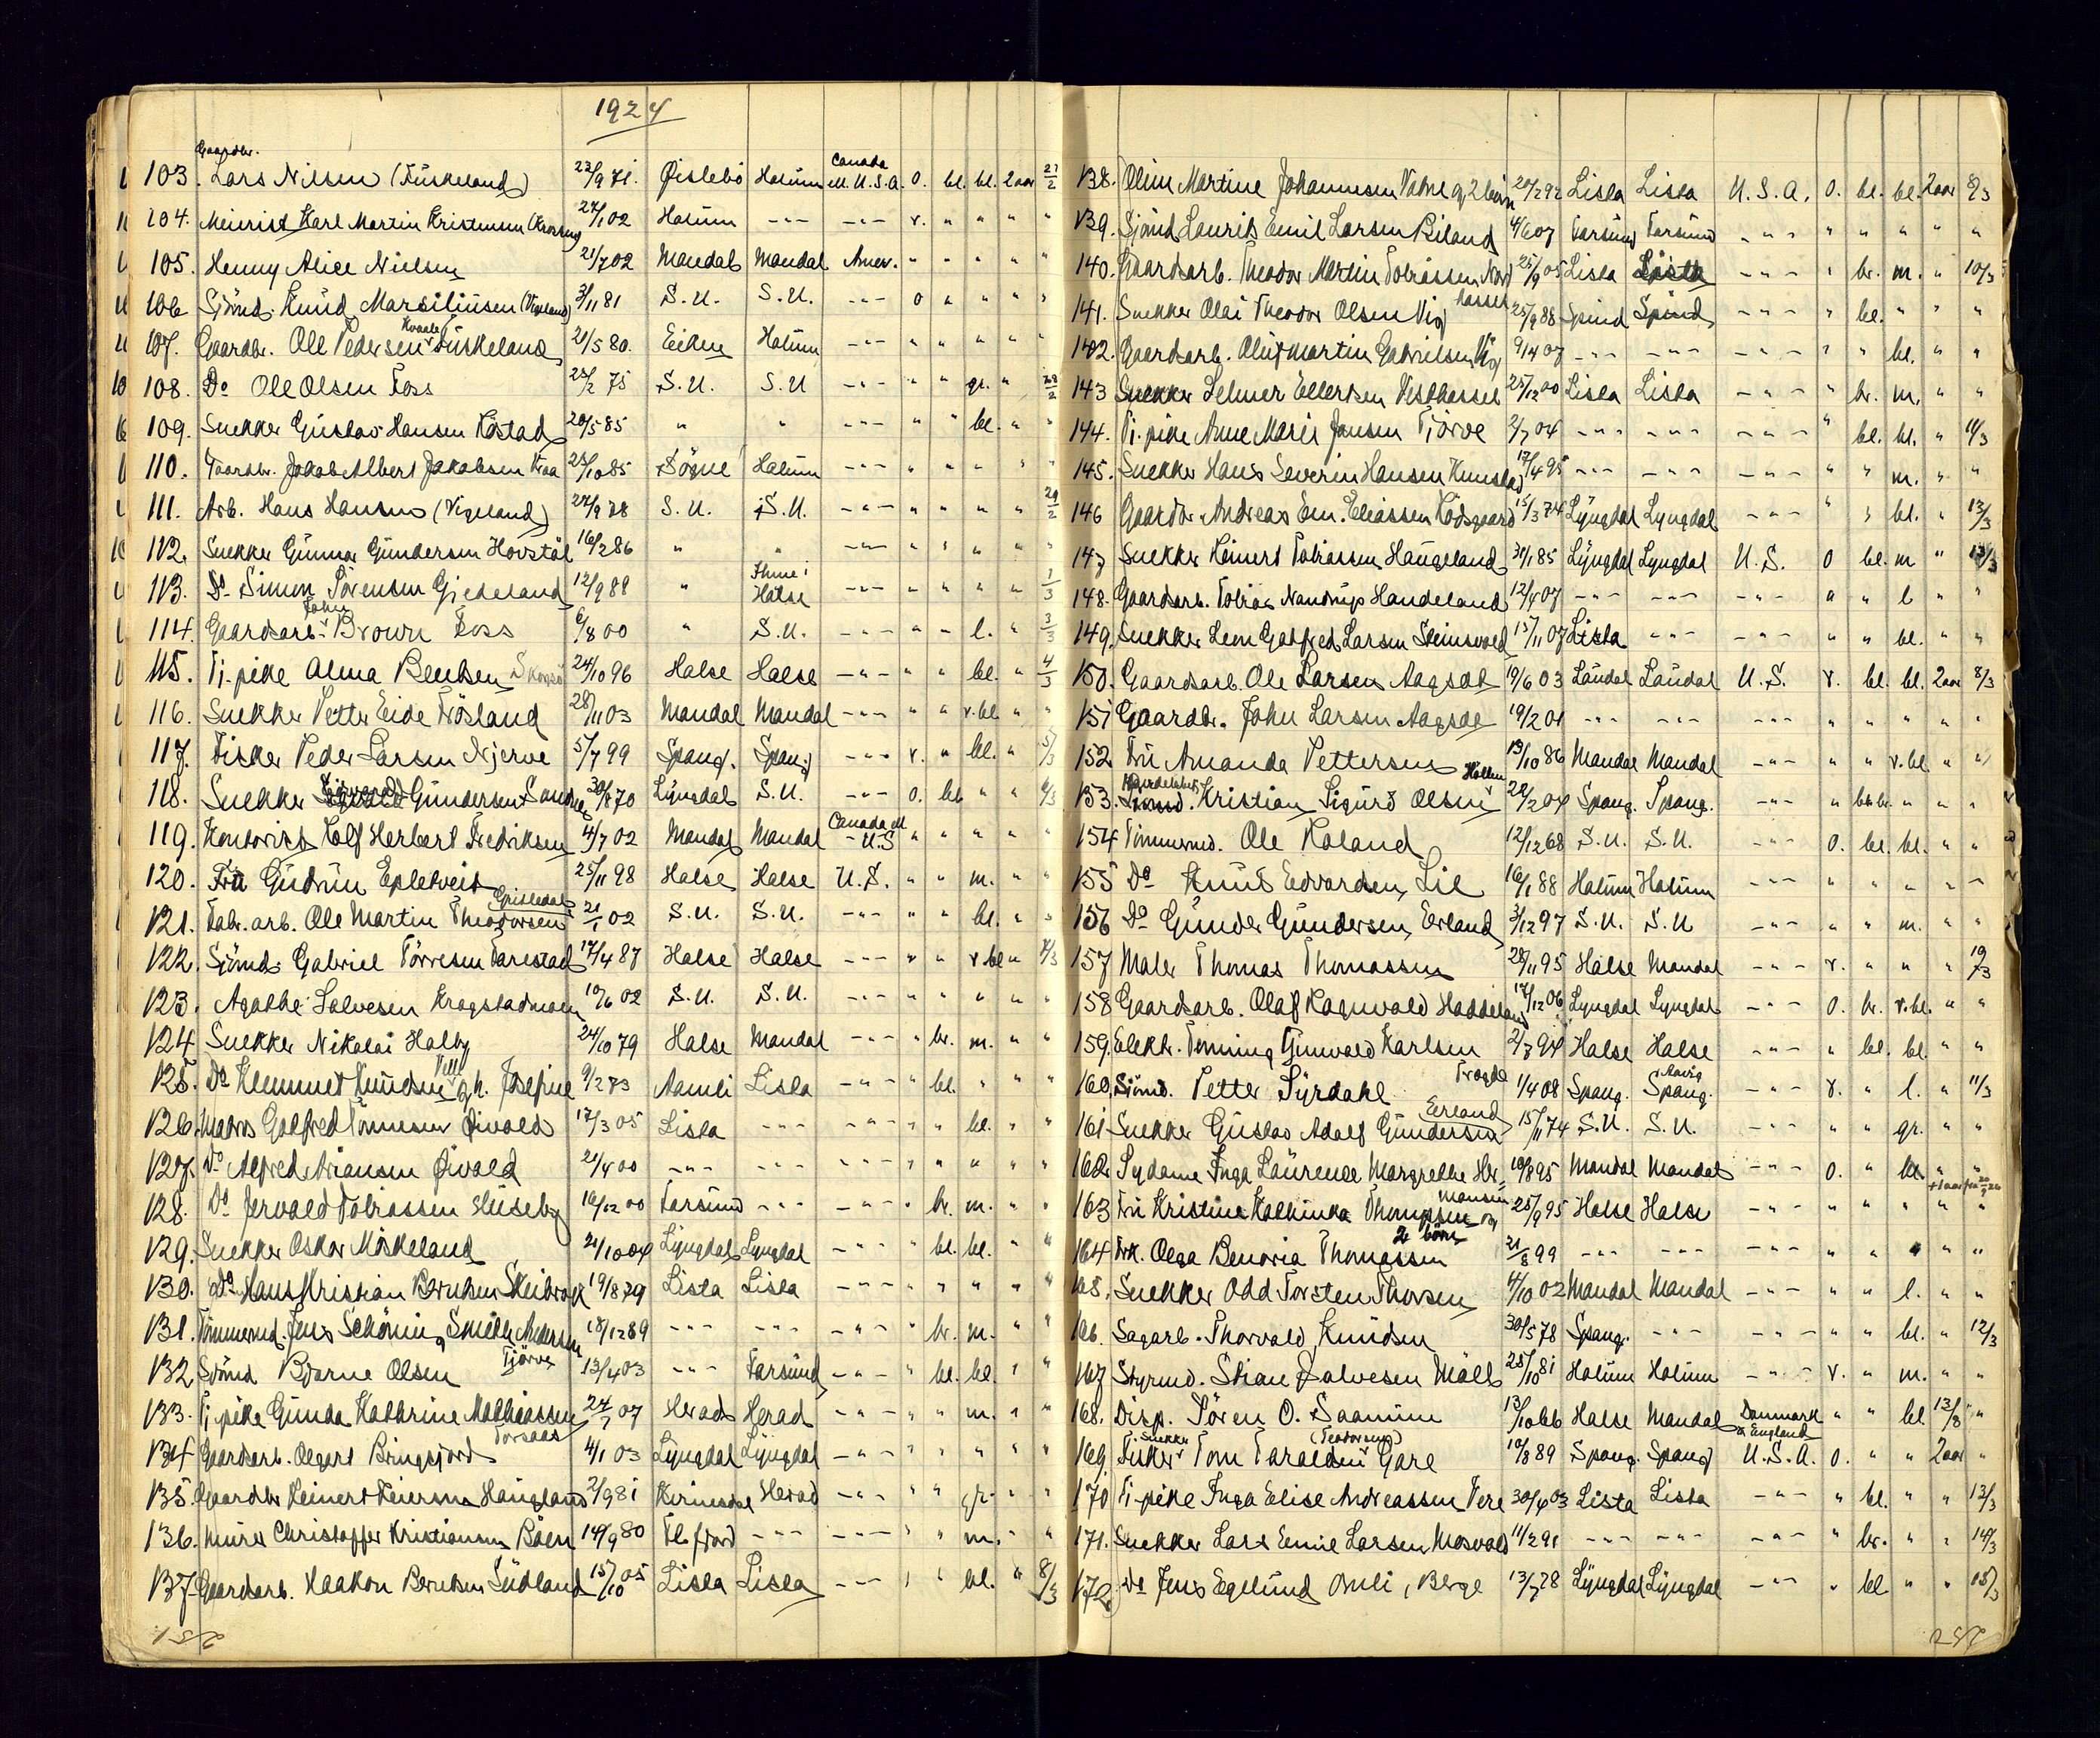 1924
103. Gaardbr. Lars Nilsen (Fuskeland) 23/9 71. Øislebø Halum Canada U.S.A. o. bl. bl. 2 aar 27/2
104. Meierist Karl Martin Kristensen 24/1 02 Halum -"- -"- v. " " " "
105. Henny Alice Nielsen 21/7 02 Mandal Mandal Amer. " " " " "
106 Sjömd. Knud Marsiliusen (Vigeland) 3/11 81 S.U. S.U. -"- o " " " "
107. Gaardbr. Ole Pedersen Kvaale Fuskeland 21/5 80. Eiken Halum -"- " " " " "
108. Do Ole Olsen Foss 25/2 75 S.U. S.U -"- " " gr. " 28/2
109. Snekker Gustav Hansen Röstad 20/5 85 " " " " bl. " "
110. Gaardbr. Jakob Albert Jakobsen Kraa 25/10 85 Sögne Halum -"- " " " " "
111. Arb. Hans Hansen (Vigeland) 24/9 78 S.U. S.U. -"- " " " " 29/2
112. Snekker Gunnar Gundersen Hovstäl 16/2 86 " " -"- " " " " "
113. Do Simon Sörensen Gjedeland 12/9 88 " Ihme i Halse -"- " " " " 1/3
114. Gaardsarb. John Brown Foss 6/8 00 " S.U. -"- " " l. " 3/3
115. Tj. pike Alma Bentsen 24/10 96 Halse Halse -"- " " bl. " 4/3
116. Snekker Petter Eide Frösland 28/11 03 Mandal Mandal -"- " " v.bl " "
117. Fisker Peder Larsen Njerve 5/7 99 Spang. Spang -"- v. " bl. " 5/3
118. Snekker Gundersen 30/8 70 Lyngdal S.U. -"- o. bl " " 6/3
119. Kontorist Rolf Herbert Fredriksen 4/7 02 Mandal Mandal Canada U.S " " " " "
120. Fru Gudrun Epletveit 25/11 98 Halse Halse U.S. " " m. " "
121. Fabr. arb. Ole Martin Theodorsen Grisledal 21/1 02 S.U. S.U. -"- " " bl. " "
122. Sjömd. Gabriel Törresen Farestad 17/4 87 Halse Halse -"- v " v.bl " 7/3
123. Agathe Salvesen Krogstadmoen 10/6 02 S.U. S.U. -"- " " " " "
124 Snekker Nikolai Halby 24/10 79 Halse Mandal -"- " br. m. " "
125. Do Klemmet Knudsen 9/2 73 Aamli Lista -"- " bl. " " "
126. Matros Gotfred Tönnesen Öivold 17/3 05 Lista -"- -"- " " bl. " "
127. Do Alfred Ariansen Öivold 21/4 00 -"- -"- -"- " " " " "
128. Do Jervald Tobiassen Huseby 16/12 00 Farsund -"- -"- " br. m. " "
129. Snekker Oskar Möskeland 21/10 04 Lyngdal Lyngdal -"- " bl. bl. " "
130. Do Hans Kristian Berntsen Skeibrok 19/8 79 Lista Lista -"- " " " " "
131. Tömmermd. Jens Schöning Smith Andersen 18/12 89 -"- -"- -"- " br. m. " "
132 Sjömd Bjarne Olsen Tjörve 13/4 03 -"- Farsund -"- " bl. bl. " "
133. Tj. pike Gunda Kathrine Mathiassen Torsaas 24/7 07 Herad Herad -"- " " m. " "
134 Gaardsarb. Olgert Bringsjord 4/1 03 Lyngdal Lyngdal -"- " " " " "
135. Gaardbr Reinert Reiersen Haugland 2/9 81 Kvinesdal Herad -"- " " gr. " "
136. Murer Christoffer Kristiansen Böen 14/9 80 Flefjord -"- -"- " " m. " "
137 Gaardsarb. Haakon Berntsen Sudland 15/10 05 Lista Lista -"- " " bl. " 8/3
251.
138. Oline Martine Johannesen Vatne og 2 börn 20/2 92 Lista Lista U.S.A. o. bl. bl. 2 aar 8/3
139. Sjömd Laurits Emil Larsen Biland 4/6 07 Farsund Farsund -"- " " " " "
140. Gaardsarb. Theodor Martin Tobiassen Nordhassel 25/9 05 Lista Lista -"- " br. m. " 10/3
141. Snekker Olai Theodor Olsen Vig 25/9 88 Spind Spind -"- " bl. " " "
142. Gaardsarb. Oluf Martin Gabrielsen Vig 9/4 07 -"- -"- -"- " " bl. " "
143 Snekker Selmer Ellertsen Vesthassel 25/12 00 Lista Lista -"- " br. m. " "
144. Tj. pike Anne Marie Jansen Tjörve 2/7 04 -"- -"- -"- " bl. bl. " 11/3
145. Snekker Hans Severin Hansen Kunstad 17/4 95 -"- -"- -"- " " m. " "
146 Gaardbr Andreas Em. Eliassen Rödsgaard 15/3 74 Lyngdal Lyngdal -"- " " bl. " 13/3
147 Snekker Reinert Tobiassen Haugeland 31/1 85 Lyngdal Lyngdal U.S. O bl. m " 13/3
148. Gaardsarb. Tobias Nandrup Handeland 12/4 07 -"- -"- -"- " " l " "
149. Snekker Leon Gotfred Larsen Steinsvold 15/11 07 Lista -"- -"- " " bl. " "
150. Gaardsarb. Ole Larsen Aagsæt 19/6 03 Laudal Laudal U.S. v. bl. bl. 2 aar 8/3
151 Gaardbr. John Larsen Aagsæt 19/2 01 -"- -"- -"- " " " " "
152. Fru Amanda Pettersen 13/10 86 Mandal Mandal -"- " " v.bl " "
153. Kristian Sigurd Olsen 22/2 04 Spang. Spang. -"- " " " "
154 Tömmermd. Ole Holand 12/12 68 S.U. S.U. -"- o. bl. bl. " "
155 Do Knut Edvardsen Lie 16/1 88 Halum Halum -"- " " " " "
156 Do Gunder Gundersen, Eerland 3/12 97 S.U. S.U -"- " " m. " "
157 Maler Thomas Thomassen 28/11 95 Halse Mandal -"- v. " " " 10/3
158 Gaardsarb. Olaf Ragnvald Haddeland 17/12 06 Lyngdal Lyngdal -"- o. br. v.bl. " "
159. Elektr. Tenning Gunvald Karlsen 2/7 94 Halse Halse -"- " bl. bl. " "
160. Sjömd. Petter Syrdahl Trogde 1/4 08 Spang. Spang. -"- v. " l. " 11/3
161 Snekker Gustav Adolf Gundersen Eerland 15/11 74 S.U. S.U. -"- " " gr. " "
162. Sydame Inga Laurence Margrethe Hermansen 10/8 95 Mandal Mandal -"- o. " bl. " "
163 Fru Kristine Kathinka Thomassen og 2 börn 25/9 95 Halse Halse -"- " " " " "
164 Frk. Olga Benovia Thomassen 21/8 99 -"- -"- -"- " " " " "
165. Snekker Odd Torsten Thorsen 4/10 02 Mandal Mandal -"- " " l. " "
166. Sagarb. Thorvald Knudsen 30/5 78 Spang. -"- -"- " " bl. " 12/3
167 Styrmd. Stian Salvesen Möll 25/10 81 Halum Halum -"- v. " m. " "
168. Disp. Sören O. Saanum 13/10 66 Halse Mandal Danmark & England " " bl 13/8 "
169. Fisker T. Snekker Tom Taraldsen (Teodorsen) Gare 10/8 89 Spang. Spang U.S.A. o. " " 2 aar "
170 Tj. pike Inga Elise Andreassen Vere 30/4 03 Lista Lista -"- " bl. " " 13/3
171. Snekker Lars Emil Larsen Mosvold 11/2 91 -"- -"- -"- " br. " " 14/3
172. Do Jens Egelund Omli, Berge 13/7 78 Lyngdal Lyngdal -"- " bl. " " 15/3
252